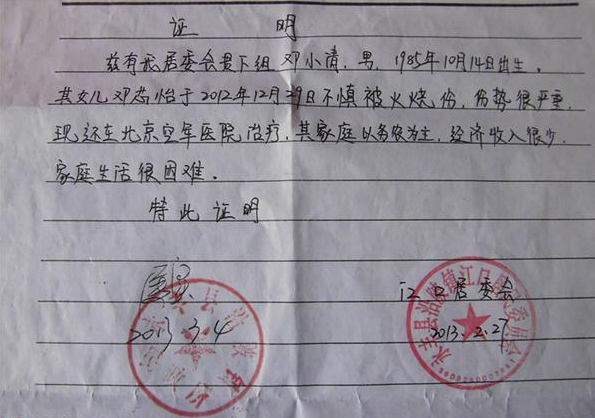 证 明
兹有我居委会景下组邓小清,男,1985年10月14日出生。
其女儿邓芯怡于2012年12月29日不慎被火烧伤,伤势很严重,
现还在北京空军医院治疗,其家庭以务农为主,经济收入很少,
家庭生活很困难。
特此证明
属实
2013.3.4
江口居委会
2013.2.27